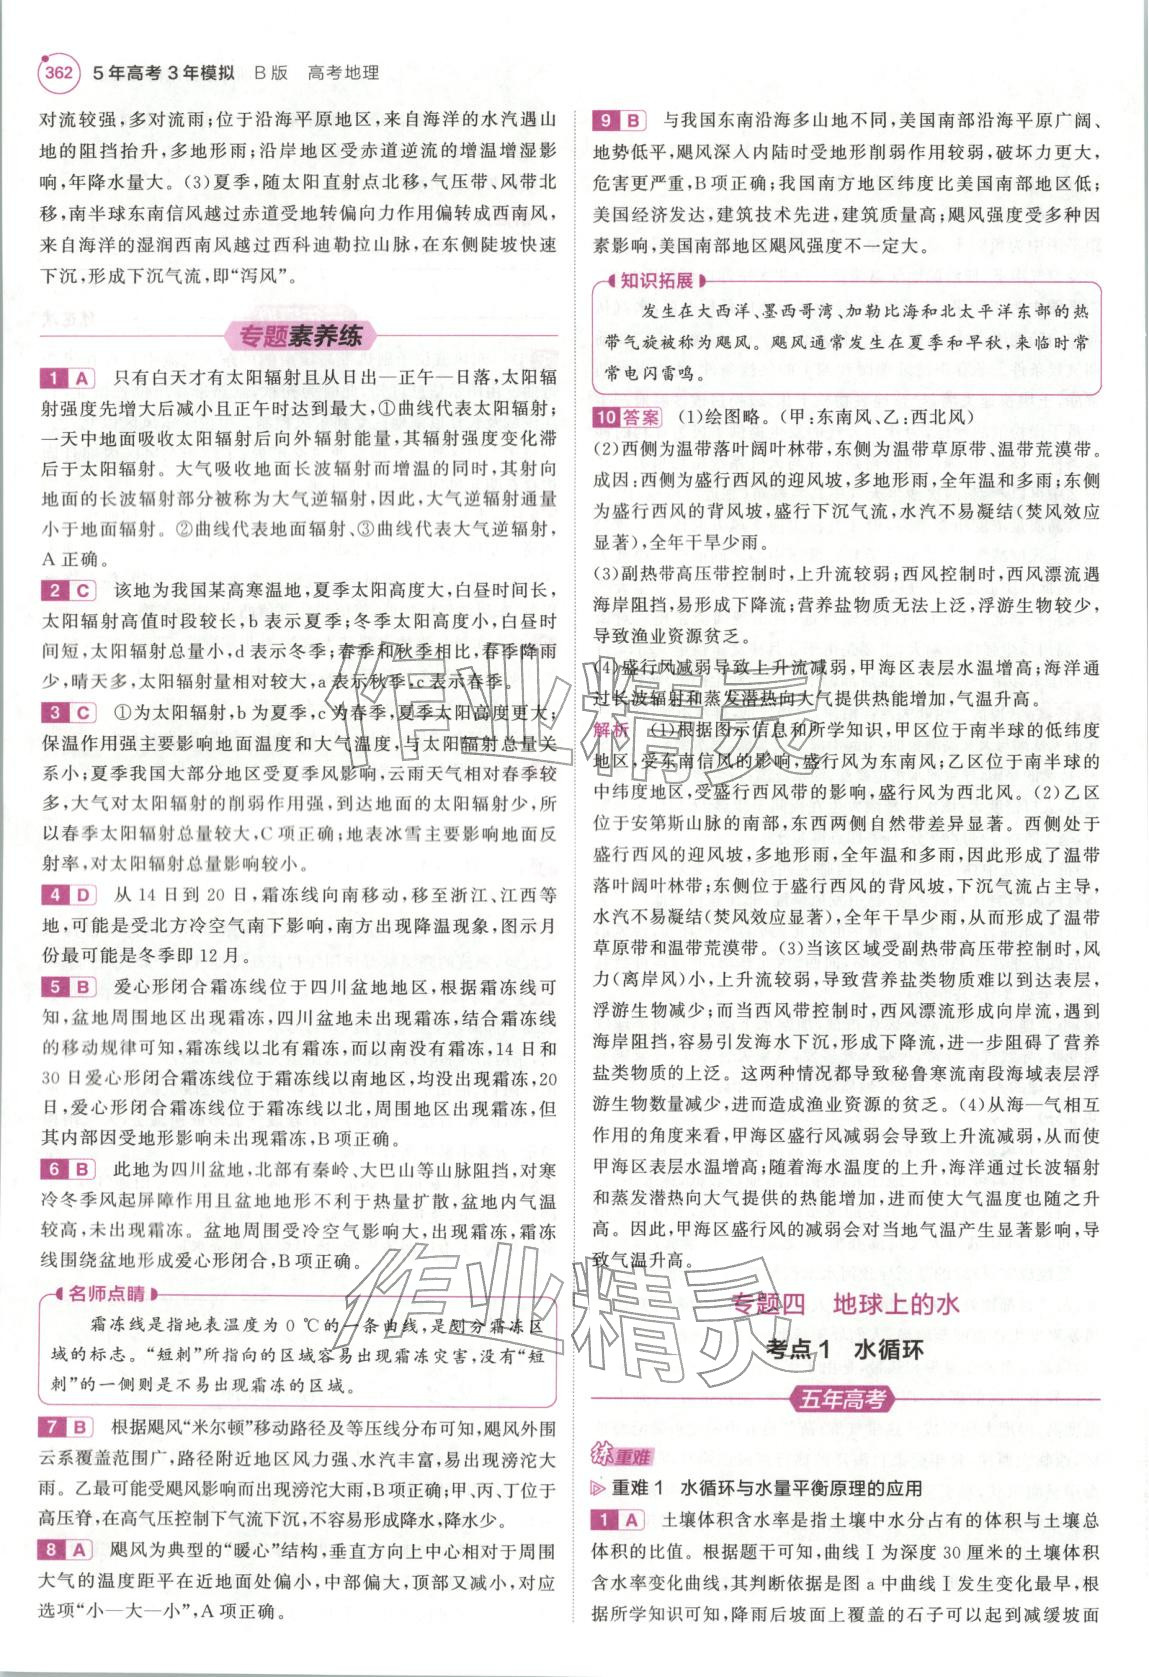 362 5年高考3年模拟 B版 高考地理
对流较强，多对流雨；位于沿海平原地区，来自海洋的水汽遇山
地的阻挡抬升，多地形雨；沿岸地区受赤道逆流的增温增湿影
响，年降水量大。(3)夏季，随太阳直射点北移，气压带、风带北
移，南半球东南信风越过赤道受地转偏向力作用偏转成西南风，
来自海洋的湿润西南风越过西科迪勒拉山脉，在东侧陡坡快速
下沉，形成下沉气流，即“泻风”。
专题素养练
1 A 只有白天才有太阳辐射且从日出—正午—日落，太阳辐
射强度先增大后减小且正午时达到最大，①曲线代表太阳辐射；
一天中地面吸收太阳辐射后向外辐射能量，其辐射强度变化滞
后于太阳辐射。大气吸收地面长波辐射而增温的同时，其射向
地面的长波辐射部分被称为大气逆辐射，因此，大气逆辐射通量
小于地面辐射。②曲线代表地面辐射、③曲线代表大气逆辐射，
A正确。
2 C 该地为我国某高寒湿地，夏季太阳高度大，白昼时间长，
太阳辐射高值时段较长，b表示夏季；冬季太阳高度小，白昼时
间短，太阳辐射总量小，d表示冬季；春季和秋季相比，春季降雨
少，晴天多，太阳辐射量较大，a表示秋季，c表示春季。
3 C ①为太阳辐射，b为夏季，c为春季，夏季太阳高度更大；
保温作用强主要影响地面温度和大气温度，与太阳辐射总量关
系小；夏季我国大部分地区受夏季风影响，云雨天气相对春季较
多，大气对太阳辐射的削弱作用强，到达地面的太阳辐射少，所
以春季太阳辐射总量较大，C项正确；地表冰雪主要影响地面反
射率，对太阳辐射总量影响较小。
4 D 从14日到20日，霜冻线向南移动，移至浙江、江西等
地，可能是受北方冷空气南下影响，南方出现降温现象，图示月
份最可能是冬季即12月。
5 B 爱心形闭合霜冻线位于四川盆地地区，根据霜冻线可
知，盆地周围地区出现霜冻，四川盆地未出现霜冻，结合霜冻线
的移动规律可知，霜冻线以北有霜冻，而以南没有霜冻，14日和
30日爱心形闭合霜冻线位于霜冻线以南地区，均没出现霜冻，20
日，爱心形闭合霜冻线位于霜冻线以北，周围地区出现霜冻，但
其内部因受地形影响未出现霜冻，B项正确。
6 B 此地为四川盆地，北部有秦岭、大巴山等山脉阻挡，对寒
冷冬季风起屏障作用且盆地地形不利于热量扩散，盆地内气温
较高，未出现霜冻。盆地周围受冷空气影响大，出现霜冻，霜冻
线围绕盆地形成爱心形闭合，B项正确。
名师点睛
霜冻线是指地表温度为0 ℃的一条曲线，是划分霜冻区
域的标志。“短刺”所指向的区域容易出现霜冻灾害，没有“短
刺”的一侧则是不易出现霜冻的区域。
7 B 根据飓风“米尔顿”移动路径及等压线分布可知，飓风外围
云系覆盖范围广，路径附近地区风力强、水汽丰富，易出现滂沱大
雨。乙最可能受飓风影响而出现滂沱大雨，B项正确；甲、丙、丁位于
高压脊，在高气压控制下气流下沉，不容易形成降水，降水少。
8 A 飓风为典型的“暖心”结构，垂直方向上中心相对于周围
大气的温度距平在近地面处偏小，中部偏大，顶部又减小，对应
选项“小—大—小”，A项正确。
9 B 与我国东南沿海多山地不同，美国南部沿海平原广阔、
地势低平，飓风深入内陆时受地形削弱作用较弱，破坏力更大，
危害更严重，B项正确；我国南方地区纬度比美国南部地区低；
美国经济发达，建筑技术先进，建筑质量高；飓风强度受多种因
素影响，美国南部地区飓风强度不一定大。
知识拓展
发生在大西洋、墨西哥湾、加勒比海和北太平洋东部的热
带气旋被称为飓风。飓风通常发生在夏季和早秋，来临时常
常电闪雷鸣。
10 答案 (1)绘图略。(甲：东南风、乙：西北风)
(2)西侧为温带落叶阔叶林带，东侧为温带草原带、温带荒漠带。
成因：西侧为盛行西风的迎风坡，多地形雨，全年温和多雨；东侧
为盛行西风的背风坡，盛行下沉气流，水汽不易凝结(焚风效应
显著)，全年干旱少雨。
(3)副热带高压带控制时，上升流较弱；西风控制时，西风漂流遇
海岸阻挡，易形成下降流；营养盐物质无法上泛，浮游生物较少，
导致渔业资源贫乏。
(4)盛行风减弱导致上升流减弱，甲海区表层水温增高；海洋通
过长波辐射和蒸发潜热向大气提供热能增加，气温升高。
解析 (1)根据图示信息和所学知识，甲区位于南半球的低纬度
地区，受东南信风的影响，盛行风为东南风；乙区位于南半球的
中纬度地区，受盛行西风带的影响，盛行风为西北风。(2)乙区
位于安第斯山脉的南部，东西两侧自然带差异显著。西侧处于
盛行西风的迎风坡，多地形雨，全年温和多雨，因此形成了温带
落叶阔叶林带；东侧位于盛行西风的背风坡，下沉气流占主导，
水汽不易凝结(焚风效应显著)，全年干旱少雨，从而形成了温带
草原带和温带荒漠带。(3)当该区域受副热带高压带控制时，风
力(离岸风)小，上升流较弱，导致营养盐类物质难以到达表层，
浮游生物减少；而当西风带控制时，西风漂流形成向岸流，遇到
海岸阻挡，容易引发海水下沉，形成下降流，进一步阻碍了营养
盐类物质的上泛。这两种情况都导致秘鲁寒流南段海域表层浮
游生物数量减少，进而造成渔业资源的贫乏。(4)从海—气相互
作用的角度来看，甲海区盛行风减弱会导致上升流减弱，从而使
甲海区表层水温增高；随着海水温度的上升，海洋通过长波辐射
和蒸发潜热向大气提供的热能增加，进而使大气温度也随之升
高。因此，甲海区盛行风的减弱会对当地气温产生显著影响，导
致气温升高。
专题四 地球上的水
考点1 水循环
五年高考
练重难
重难1 水循环与水量平衡原理的应用
1 A 土壤体积含水率是指土壤中水分占有的体积与土壤总
体积的比值。根据题干可知，曲线Ⅰ为深度30厘米的土壤体积
含水率变化曲线，其判断依据是图a中曲线Ⅰ发生变化最早，根
据所学知识可知，降雨后坡面上覆盖的石子可以起到减缓坡面
作业精灵
作业精灵